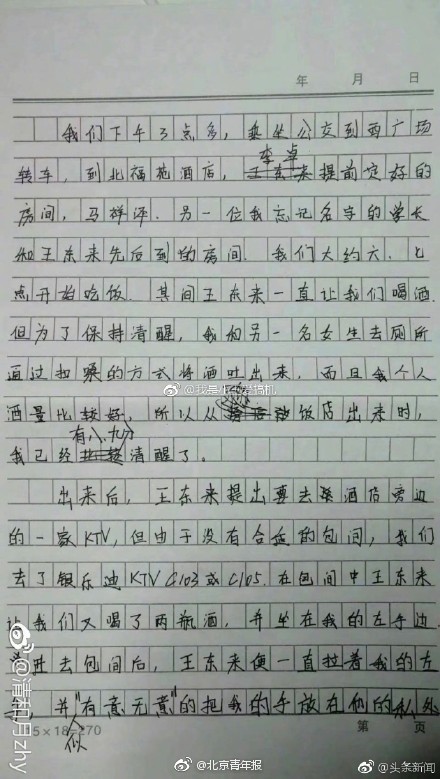 年 月 日
我们下午3点多，乘坐公交到西广场
李卓
转车，到北福苑酒店，王东来提前定好的
房间，马祥泽、另一位我忘记名字的学长
和王东来先后到的房间。我们大约六、七
点开始吃饭。其间王东来一直让我们喝酒
但为了保持清醒，我和另一名女生去厕所
通过抠嗓的方式将酒吐出来，而且我个人
酒量比较好，所以从饭店出来时，
有八、九分
我已经比较清醒了。
出来后，王东来提出要去酒店旁边
的一家KTV，但由于没有合适的包间，我们
去了银乐迪KTV C103或C105。在包间中王东来
让我们又喝了两瓶酒，并坐在我的左手边
进去包间后，王东来便一直拉着我的左
并"有意无意"的把我的手放在他的私处
似
5×18=270
第 页
@我是 爱搞机
@清和月zhy
@北京青年报
@头条新闻